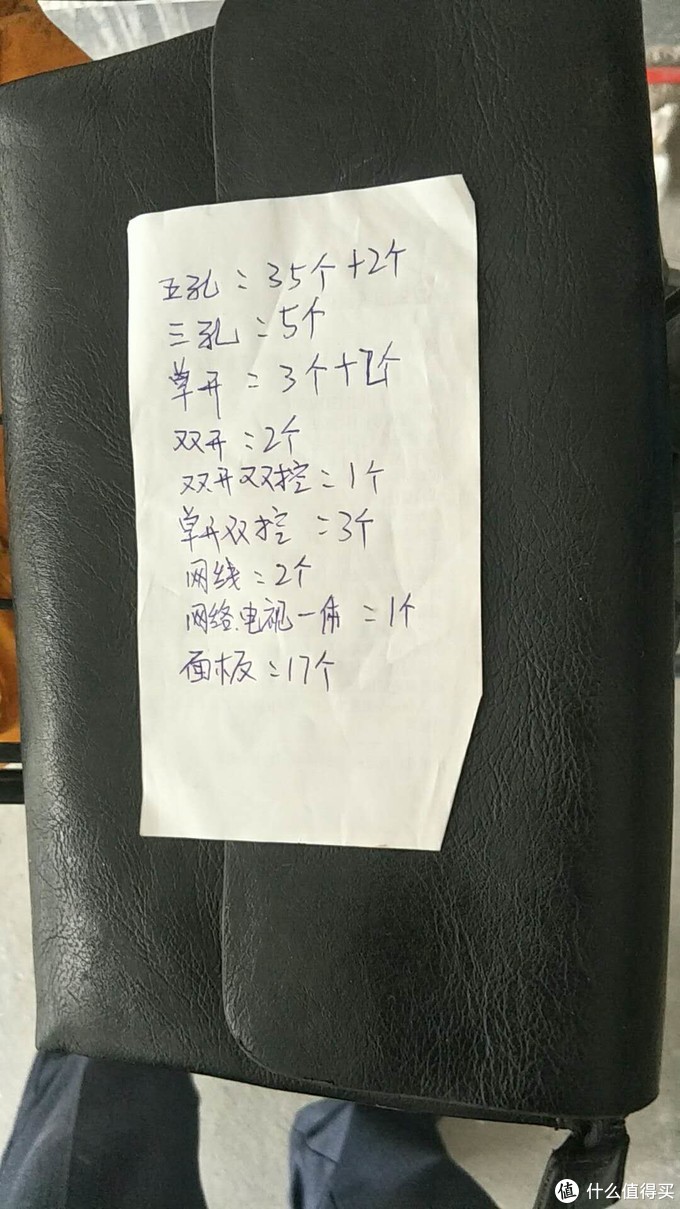 五孔:35个+2个
三孔:5个
单开:3个+1个
双开:2个
双开双控:1个
单开双控:3个
网线:2个
网络.电视一体:1个
面板:17个
值 什么值得买